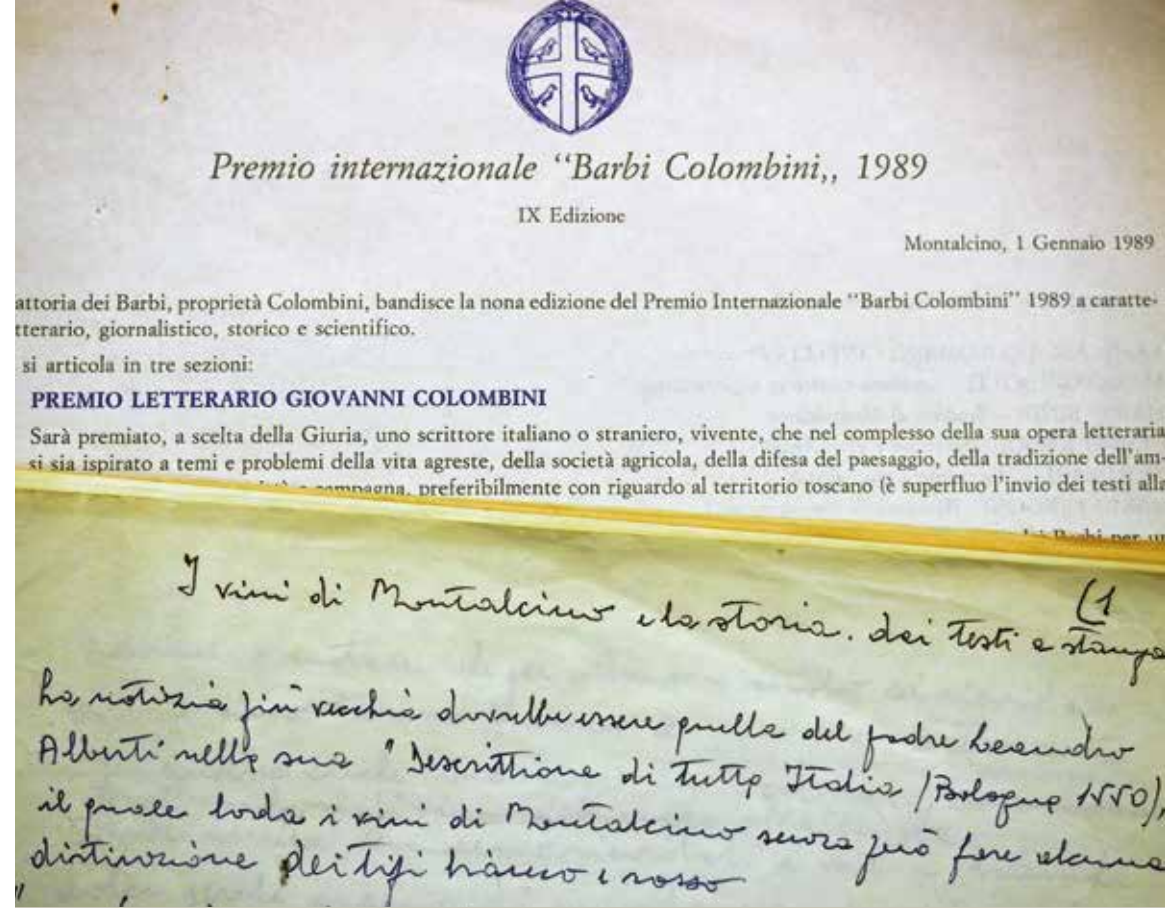 Premio internazionale “Barbi Colombini„ 1989
IX Edizione
Montalcino, 1 Gennaio 1989
attoria dei Barbi, proprietà Colombini, bandisce la nona edizione del Premio Internazionale “Barbi Colombini” 1989 a caratte-
tterario, giornalistico, storico e scientifico.
si articola in tre sezioni:
PREMIO LETTERARIO GIOVANNI COLOMBINI
Sarà premiato, a scelta della Giuria, uno scrittore italiano o straniero, vivente, che nel complesso della sua opera letteraria
si sia ispirato a temi e problemi della vita agreste, della società agricola, della difesa del paesaggio, della tradizione dell'am-
campagna, preferibilmente con riguardo al territorio toscano (è superfluo l'invio dei testi alla
Barbi per un
(1
I vini di Montalcino e la storia. dai testi a stampa
La notizia più vecchia dovrebbe essere quella del padre Leandro
Alberti nella sua "Descrittione di tutta Italia (Bologna 1550),
il quale loda i vini di Montalcino senza però fare alcuna
distinzione dei tipi bianco e rosso